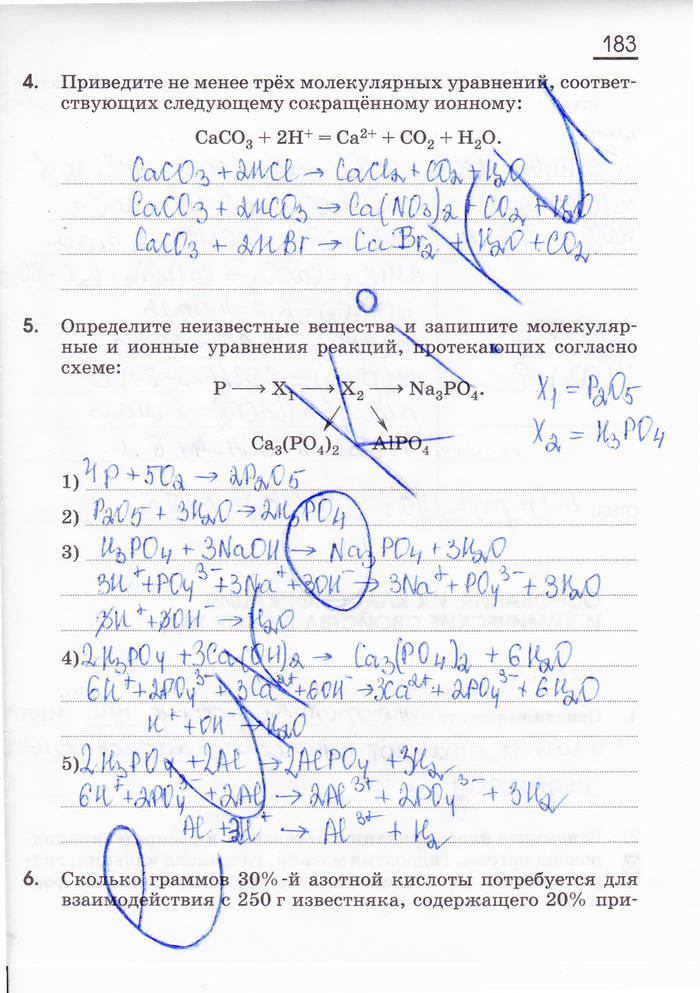 183
4. Приведите не менее трёх молекулярных уравнений, соответ-
ствующих следующему сокращённому ионному:
CaCO₃ + 2H⁺ = Ca²⁺ + CO₂ + H₂O.
CaCO₃ + 2HCl → CaCl₂ + CO₂ + H₂O
CaCO₃ + 2HCO₃ → Ca(NO₃)₂ + CO₂ + H₂O
CaCO₃ + 2HBr → CaBr₂ + H₂O + CO₂
5. Определите неизвестные вещества и запишите молекуляр-
ные и ионные уравнения реакций, протекающих согласно
схеме:
P → X₁ → X₂ → Na₃PO₄.
X₁ = P₂O₅
Ca₃(PO₄)₂ AlPO₄
X₂ = H₃PO₄
1) 4P + 5O₂ → 2P₂O₅
2) P₂O₅ + 3H₂O → 2H₃PO₄
3) H₃PO₄ + 3NaOH → Na₃PO₄ + 3H₂O
3H⁺ + PO₄³⁻ + 3Na⁺ + 3OH⁻ → 3Na⁺ + PO₄³⁻ + 3H₂O
3H⁺ + 3OH⁻ → H₂O
4) 2H₃PO₄ + 3Ca(OH)₂ → Ca₃(PO₄)₂ + 6H₂O
6H⁺ + 2PO₄³⁻ + 3Ca²⁺ + 6OH⁻ → 3Ca²⁺ + 2PO₄³⁻ + 6H₂O
H⁺ + OH⁻ → H₂O
5) 2H₃PO₄ + 2Al → 2AlPO₄ + 3H₂
6H⁺ + 2PO₄³⁻ + 2Al → 2Al³⁺ + 2PO₄³⁻ + 3H₂
Al + 3H⁺ → Al³⁺ + H₂
6. Сколько граммов 30%-й азотной кислоты потребуется для
взаимодействия с 250 г известняка, содержащего 20% при-